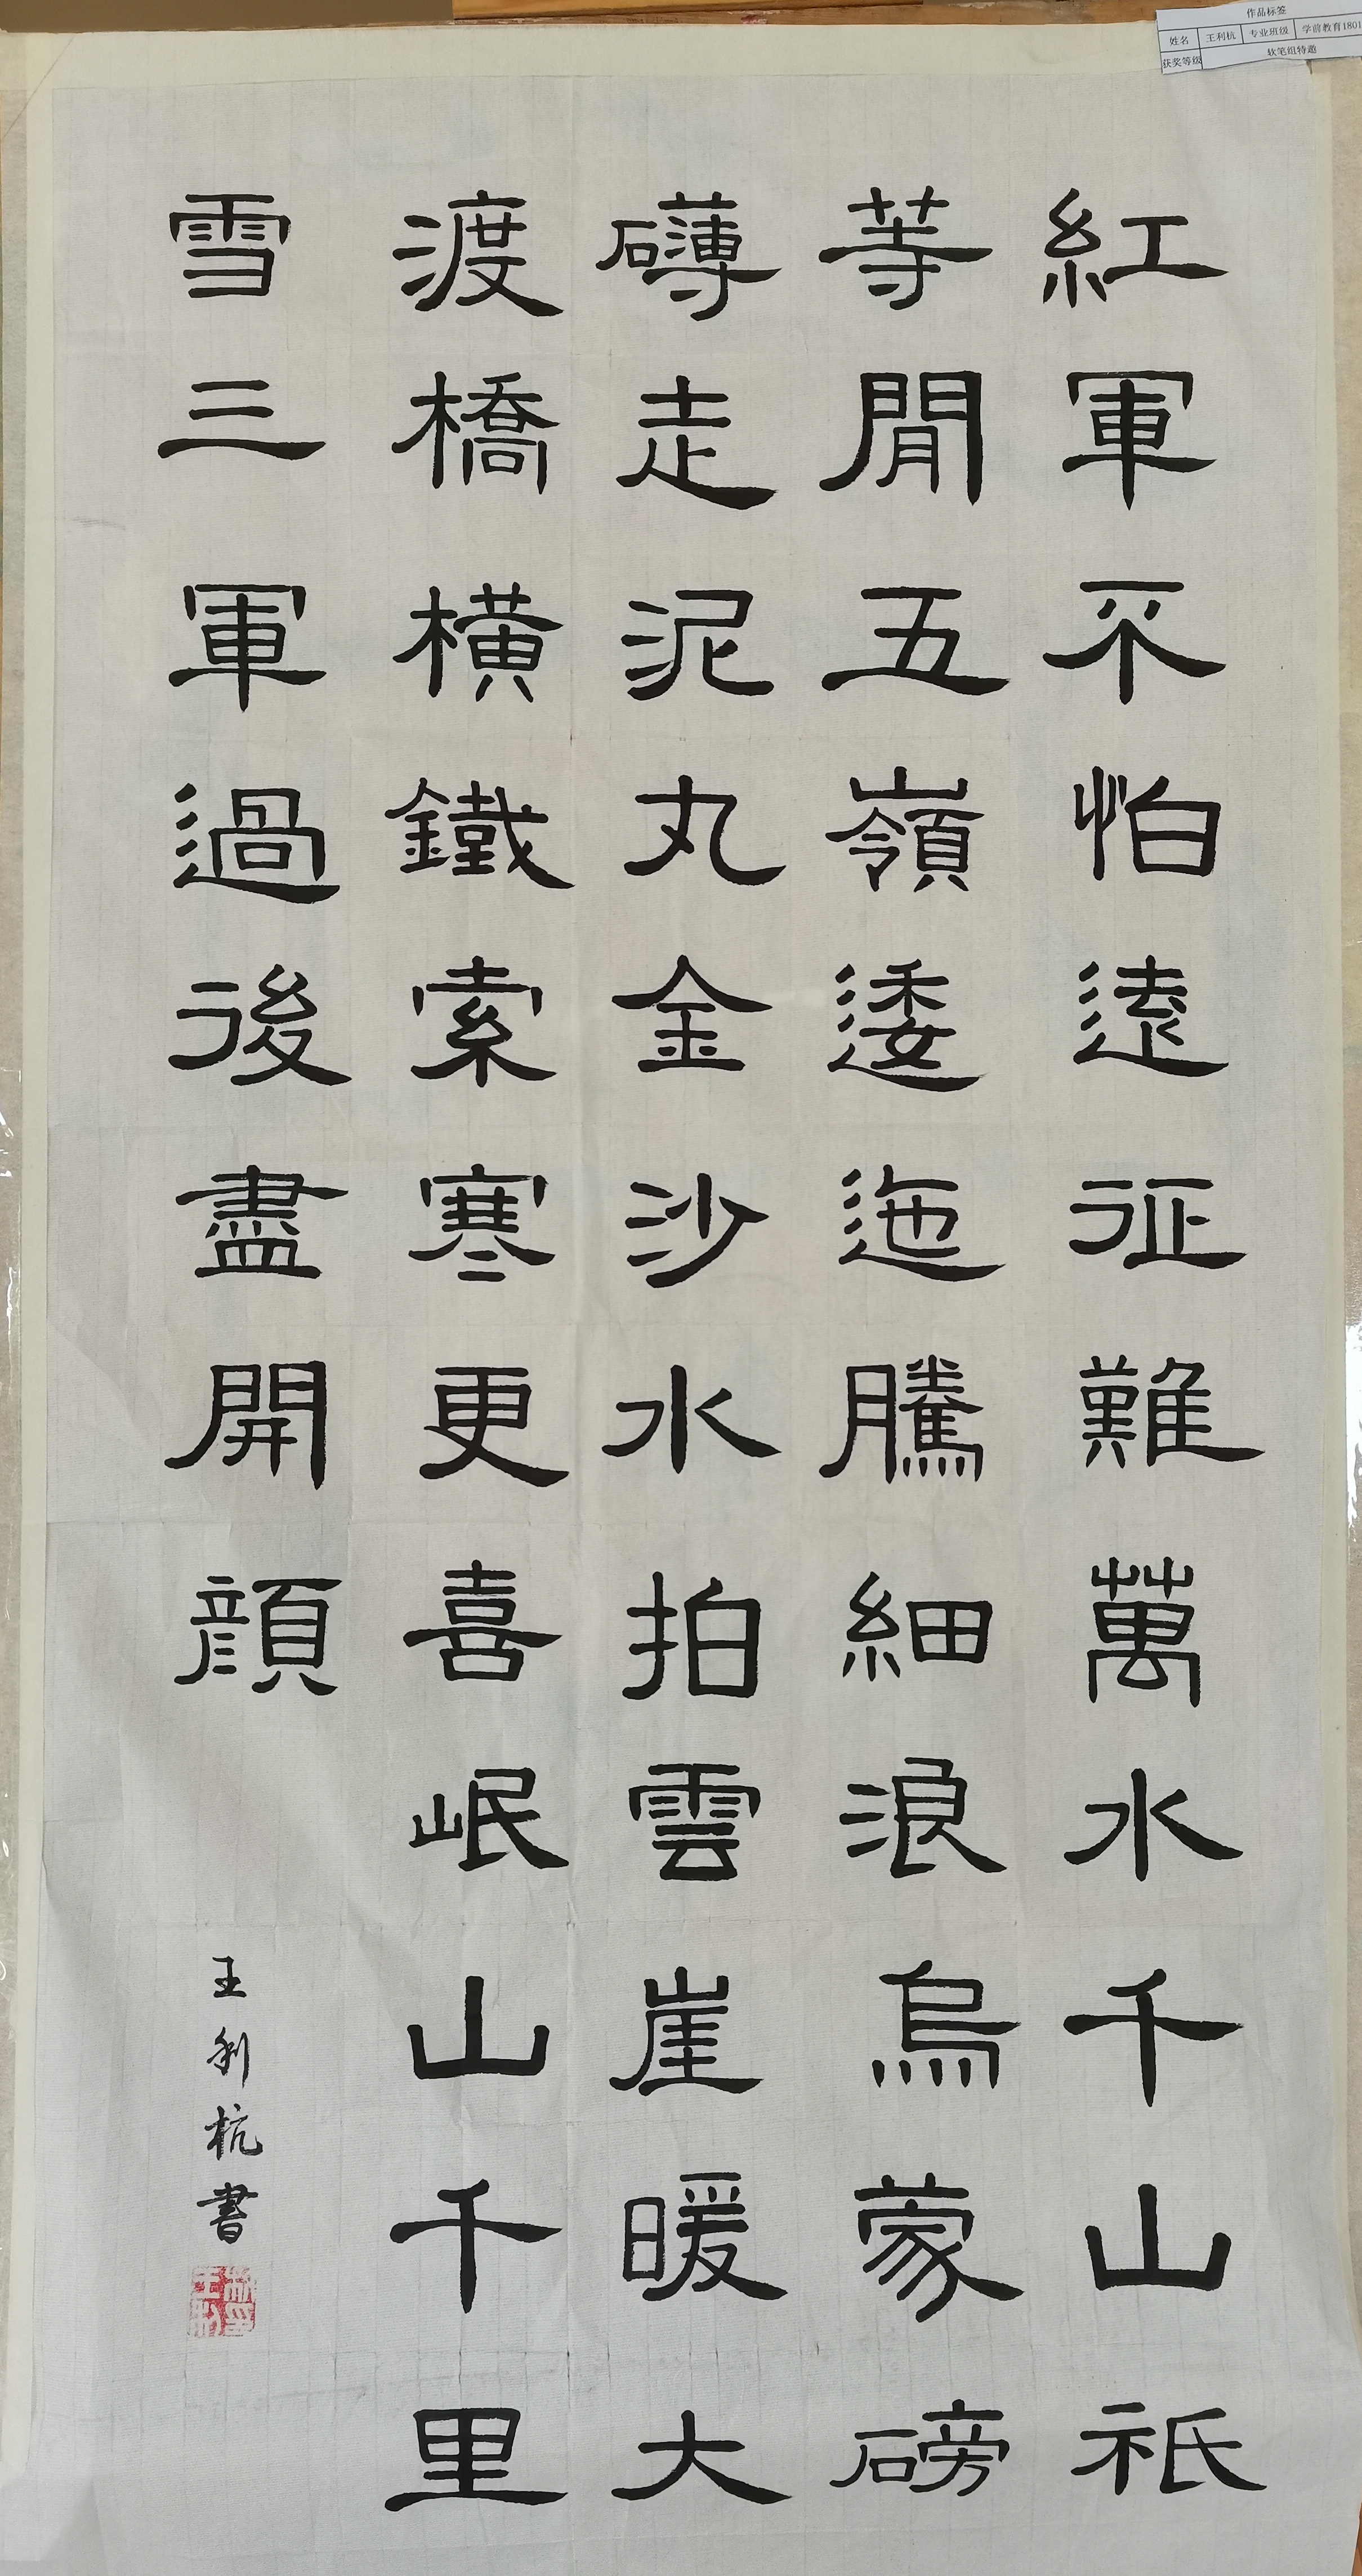 紅軍不怕遠征難萬水千山祇
等閒五嶺逶迤騰細浪烏蒙磅
礴走泥丸金沙水拍雲崖暖大
渡橋橫鐵索寒更喜岷山千里
雪三軍過後盡開顔
王利杭書
作品标签
姓名 王利杭 专业班级 学前教育1801
获奖等级 软笔组特邀